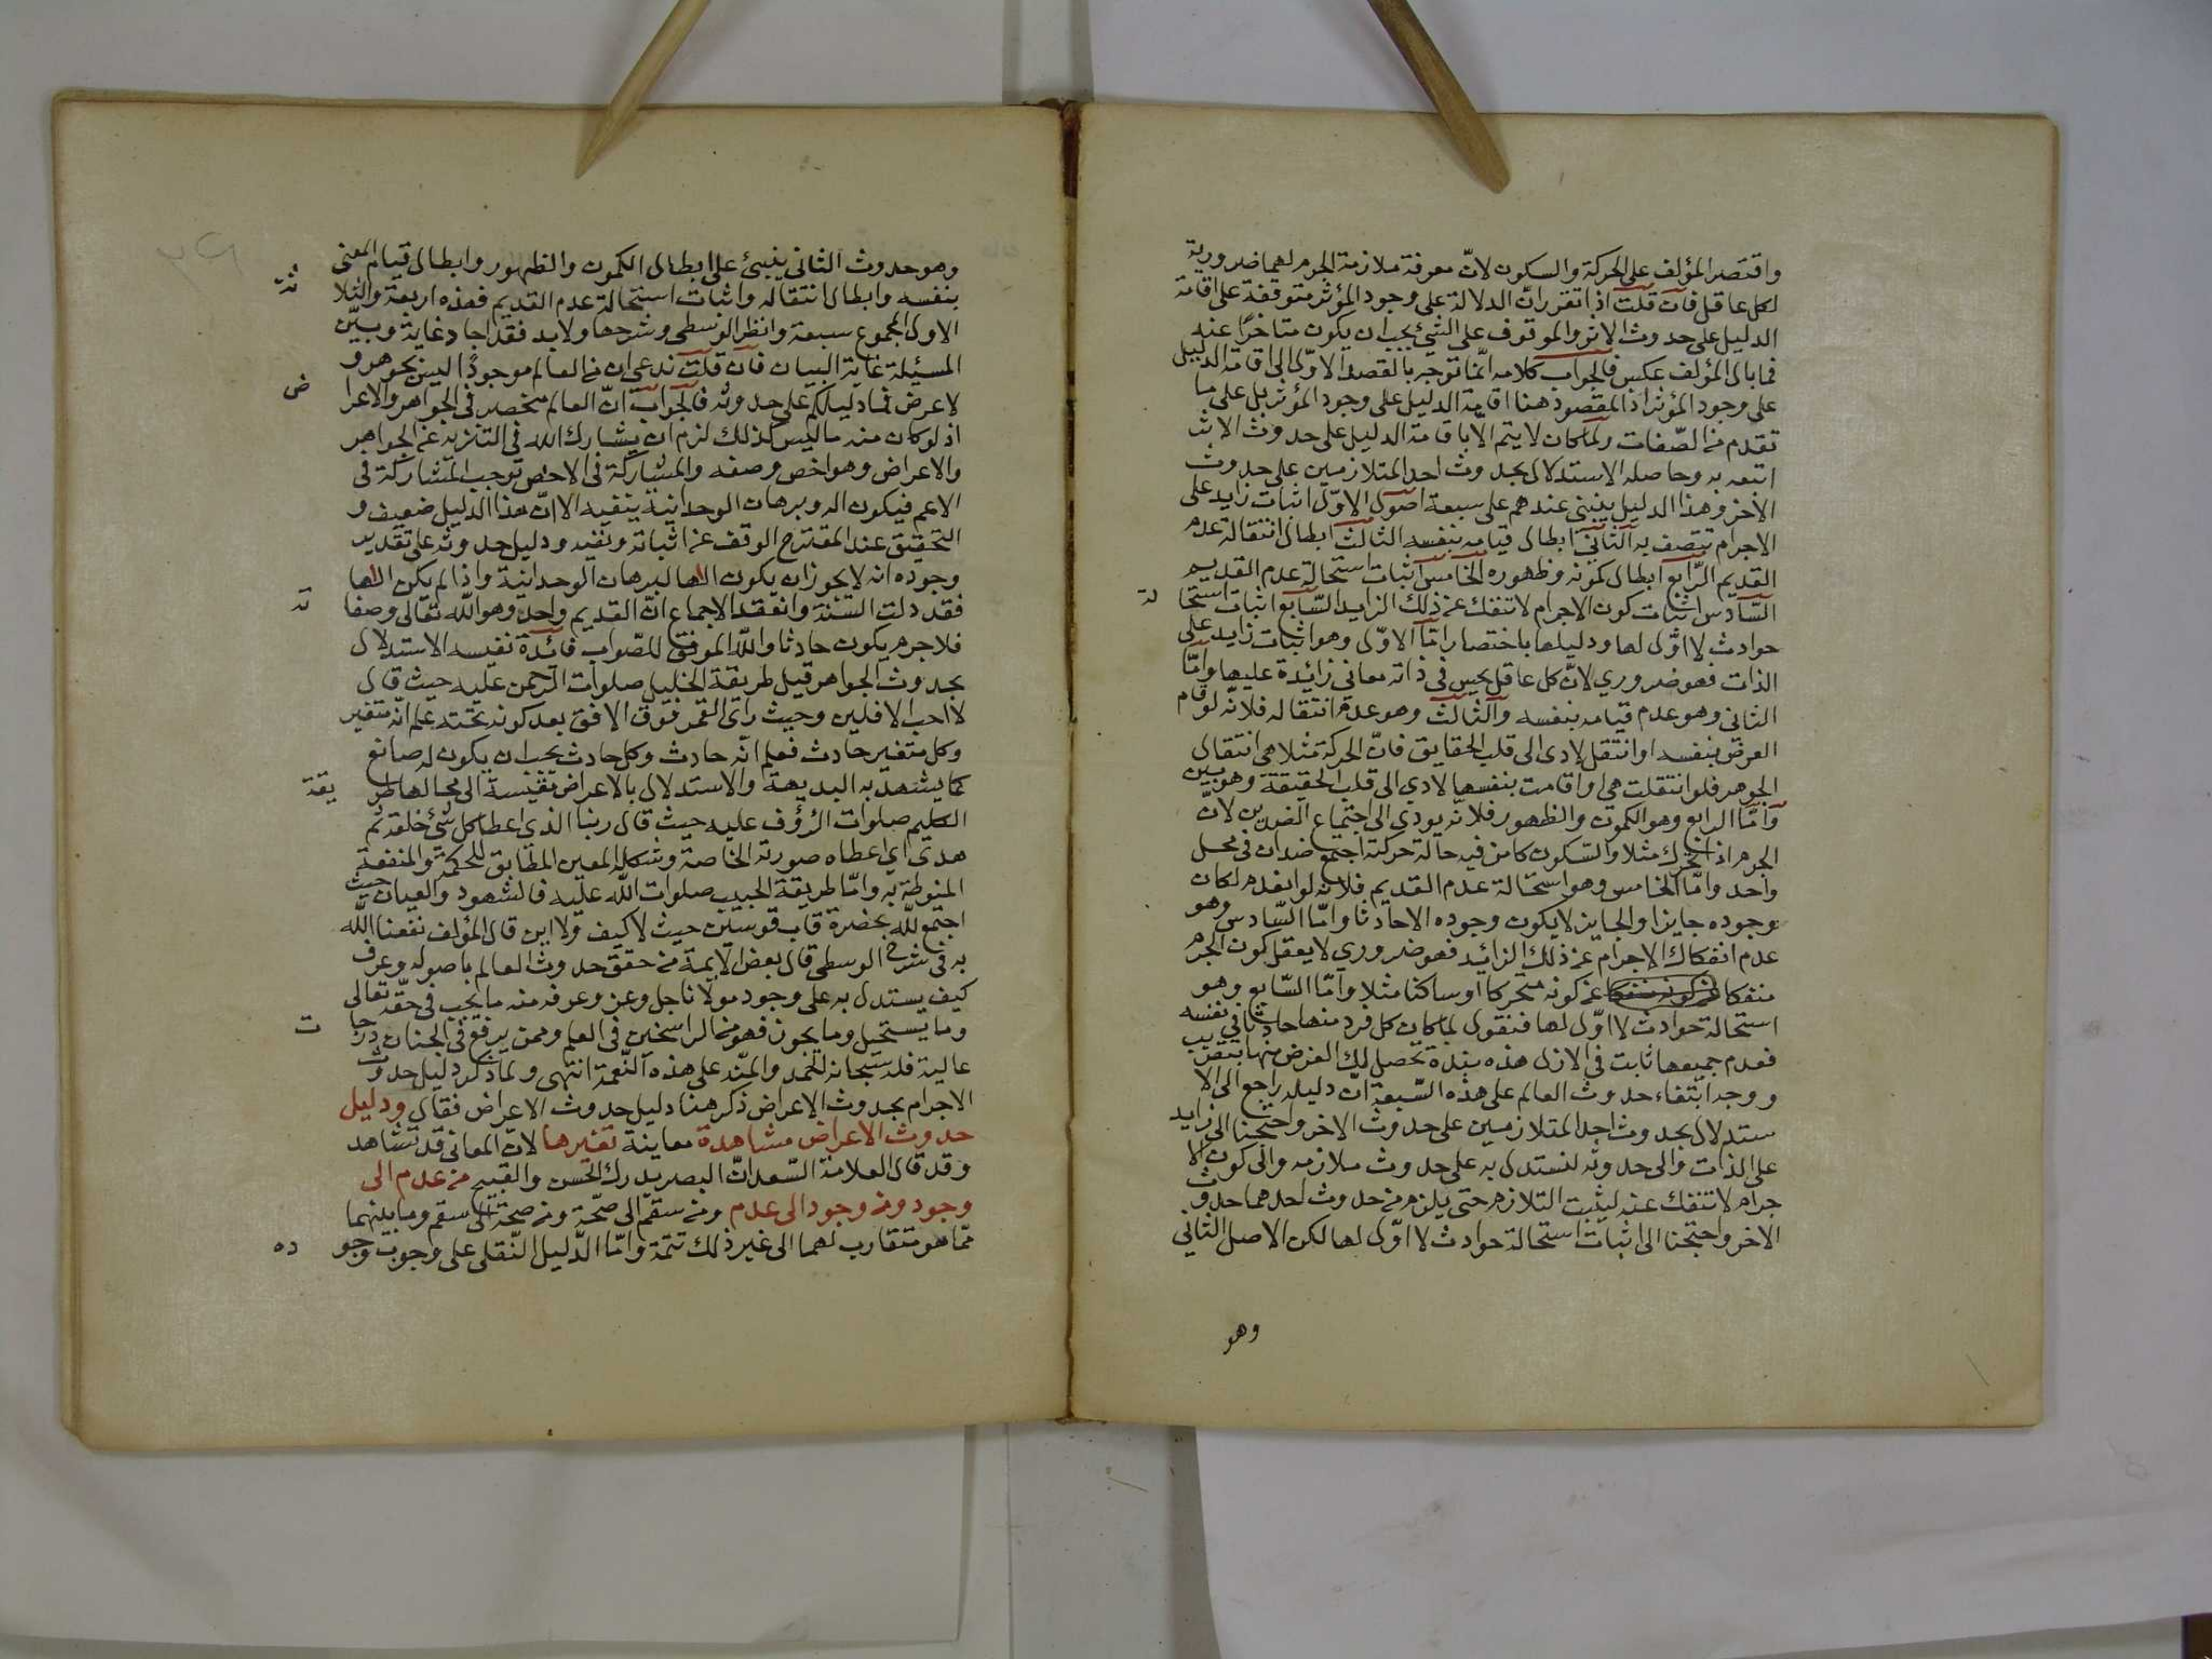 واقتصر المؤلف على الحركة والسكون لانّ معرفة ملازمة الجرم لهما ضرورية
لكل عاقل فان قلت اذا تقرر انّ الدلالة على وجود المؤثر متوقفة على اقامة
الدليل على حدوث الاثر والموقوف على الشئ يجب ان يكون متاخرًا عنه
فما بال المؤلف عكس فالجواب كلامه انّما توجه بالقصد الاوّل الى اقامة الدليل
على وجود المؤثر اذ المقصود هنا اقامة الدليل على وجود المؤثر بل على ما
تقدم من الصّفات ولمّا كان لا يتم الّا باقامة الدليل على حدوث الاثر
اتبعه به وحاصله الاستدلال بحدوث احد المتلازمين على حدوث
الاخر وهذا الدليل ينبنى عندهم على سبعة اصول الاوّل اثبات زايد على
الاجرام تتصف به الثّاني ابطال قيامه بنفسه الثالث ابطال انتقاله عدم
القديم الرّابع ابطال كمونه وظهوره الخامس اثبات استحالة عدم القديم
السّادس اثبات كون الاجرام لا تنفك عن ذلك الزايد السّابع اثبات استحا لة
حوادث لا اوّل لها ودليلها باختصار امّا الاوّل وهو اثبات زايد على
الذات فهو ضروري لانّ كل عاقل يحس في ذاته معاني زائدة عليها وامّا
الثاني وهو عدم قيامه بنفسه والثالث وهو عدم انتقاله فلانّه لو قام
العرض بنفسه او انتقل لادى الى قلب الحقايق فانّ الحركة مثلا هي انتقال
الجوهر فلو انتقلت هي او اقامت بنفسها لادي الى قلب الحقيقة وهو بين
وامّا الرابع وهو الكمون والظهور فلانّه يودي الى اجتماع الضدين لانّ
الجرم اذا تحرك مثلا والسّكون كامن فيه حالة حركته اجتمع ضدان في محل
واحد وامّا الخامس وهو استحالة عدم القديم فلانّه لو انعدم لكان
وجوده جايزا والجايز لا يكون وجوده الا حادثا وامّا السّادس وهو
عدم انفكاك الاجرام عن ذلك الزائد فهو ضروري لا يعقل كون الجرم
منفكا عن كونه متحركا او ساكنا مثلا وامّا السّابع وهو
استحالة حوادث لا اوّل لها فنقول لما كان كل فرد منها حادثا في نفسه
فعدم جميعها ثابت في الازل هذه نبذة تحصل لك الغرض منها بتقريب
ووجد ابتناء حدوث العالم على هذه السّبعة انّ دليله راجع الى الا
ستدلال بحدوث احد المتلازمين على حدوث الاخر واحتجنا الى زايد
على الذات والى حدوثه لنستدل به على حدوث ملازمه والى كون الا
جرام لا تنفك عنه ليثبت التلازم حتى يلزم من حدوث احدهما حدوث
الاخر واحتجنا الى اثبات استحالة حوادث لا اوّل لها لكن الاصل الثاني
وهو
وهو حدوث الثاني ينبنئ على ابطال الكمون والظهور وابطال قيام المعنى
بنفسه وابطال انتقاله واثبات استحالة عدم القديم فهذه اربعة والثلا ثة
الاول المجموع سبعة وانظر الوسطى وشرحها ولابد فقد اجاد غاية وبيّن
المسئلة غاية البيان فان قلت ندعى ان في العالم موجودًا ليس بجوهر و
لا عرض فما دليلكم على حدوثه فالجواب انّ العالم منحصر في الجواهر والاعرا ض
اذ لو كان منه ما ليس كذلك لزم ان يشارك الله في التنزيه عن الجواهر
والاعراض وهو اخص وصفه والمشاركة في الاخص توجب المشاركة في
الاعم فيكون اله وبرهان الوحدانية ينفيه الا انّ هذا الدليل ضعيف و
التحقيق عند المقترح الوقف عن اثباته ونفيه ودليل حدوثه على تقدير
وجوده انه لا يجوز ان يكون الها لبرهان الوحدانية واذا لم يكن الها
فقد دلت السّنة وانعقد الاجماع انّ القديم واحد وهو الله تعالى وصفا ته
فلا جرم يكون حادثا والله الموفق للصّواب فائدة نفيسه الاستدلال
بحدوث الجواهر قيل طريقة الخليل صلوات الرّحمن عليه حيث قال
لا احب الافلين وحيث راى القمر فوق الافق بعد كونه تحته علم انّه متغير
وكل متغير حادث فعلم انّه حادث وكل حادث يجب ان يكون له صانع
كما يشهد به البديهة والاستدلال بالاعراض الى محالها طر يقة
الكليم صلوات الرّؤف عليه حيث قال ربنا الذي اعطا كل شئ خلقه ثم
هدى اي اعطاه صورته الخاصة وشكله المعين المطابق للحكمة والمنفعة
المنوطة به وامّا طريقة الحبيب صلوات الله عليه فالشهود والعيان حيث
اجتمع لله بحضرة قاب قوسين حيث لا كيف ولا اين قال المؤلف نفعنا الله
به في شرح الوسطى قال بعض الايمة من حقق حدوث العالم باصوله وعرف
كيف يستدل به على وجود مولانا جل وعز وعرف منه ما يجب في حقّه تعالى
وما يستحيل وما يجوز فهو من الراسخين في العلم وممن يرفع في الجنان درجا ت
عالية فله سبحانه الحمد والمنّة على هذه النّعمة انتهى ولما ذكر دليل حدوث
الاجرام بحدوث الاعراض ذكر هنا دليل حدوث الاعراض فقال ودليل
حدوث الاعراض مشاهدة معاينة تغيرها لانّ المعاني قد تشاهد
وقد قال العلامة السّعد انّ البصر يدرك الحسن والقبيح من عدم الى
وجود ومن وجود الى عدم ومن سقم الى صحّة ومن صحّة الى سقم وما بينهما
ممّا هو متقارب لهما الى غير ذلك تتمّة وامّا الدّليل النّقلى على وجوب وجو ده